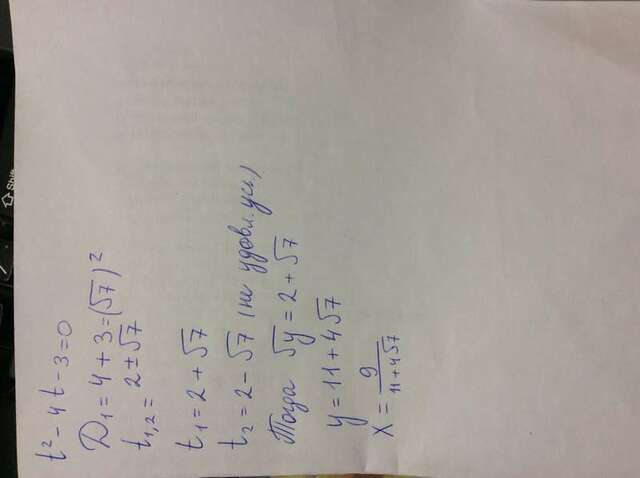 Shift
t² - 4t - 3 = 0
D₁ = 4 + 3 = (√7)²
t₁,₂ = 2 ± √7
t₁ = 2 + √7
t₂ = 2 - √7 (не удовл. усл.)
Тогда √y = 2 + √7
y = 11 + 4√7
x = 9/(11 + 4√7)